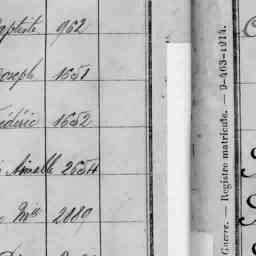 aptiste 962
Joseph 1651
Frédéric 1652
2654
2889
Guerre. — Registre matricule. — 9-463-1914.